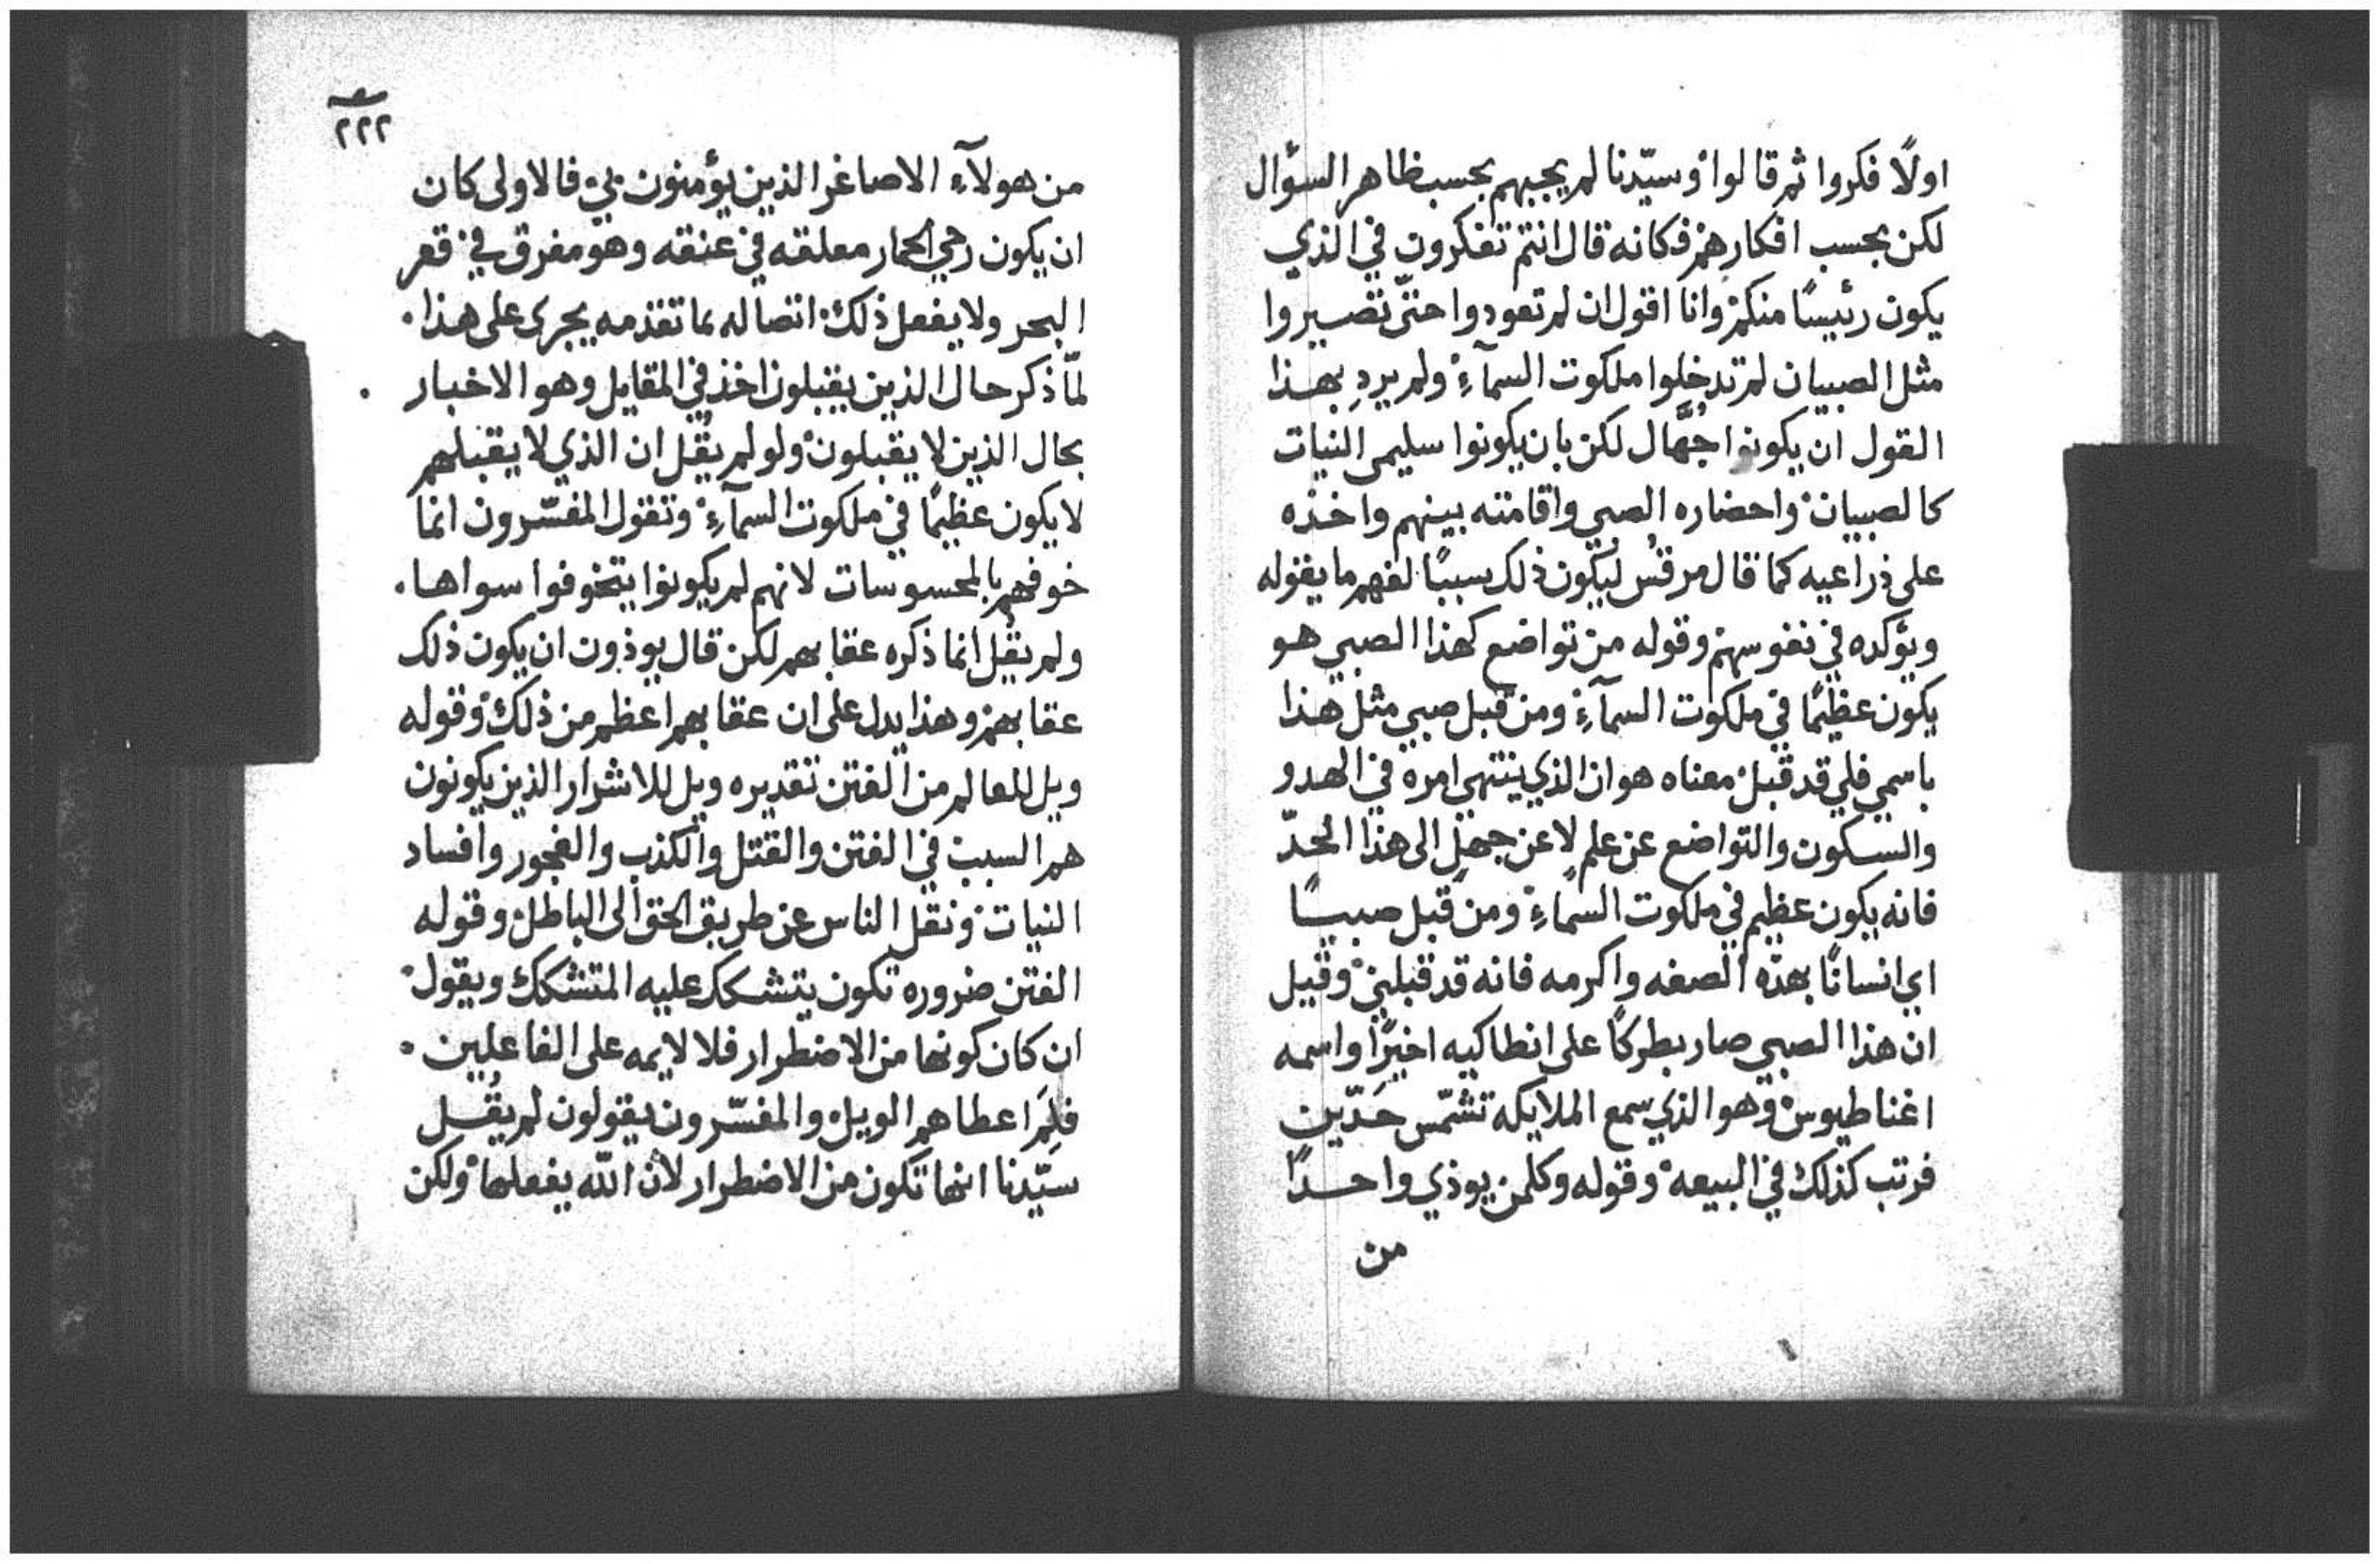 اولًا فكروا ثم قالوا وسيّدنا لم يجيبهم بحسب ظاهر السؤال
لكن بحسب افكارهم فكانه قال انتم تفكرون في الذي
يكون رئيسًا منكم وانا اقول ان لم تعودوا حتّى تصيروا
مثل الصبيان لم تدخلوا ملكوت السمآءِ ولم يردِ بهذا
القول ان يكونوا جُهَّال لكن بان يكونوا سليمى النيات
كالصبيان واحضاره الصبي واقامته بينهم واخذه
على ذراعيه كما قال مرقس ليكون ذلك سببًا لفهم ما يقوله
ويؤكده في نفوسهم وقوله من تواضع كهذا الصبي هو
يكون عظيمًا في ملكوت السمآءِ ومن قبل صبي مثل هذا
باسمي فلي قد قبل معناه هو ان الذي ينتهي امره في الهدو
والسكون والتواضع عن علمٍ لا عن جهلٍ الى هذا الحدّ
فانه يكون عظيم في ملكوت السمآءِ ومن قبل صبيًا
اي انسانًا بهذه الصفه واكرمه فانه قد قبلني وقيل
ان هذا الصبي صار بطركًا على انطاكيه اخيرًا واسمه
اغناطيوس وهو الذي سمع الملايكه تشمّس حَدّين
فرتب كذلك في البيعه وقوله وكلمن يوذي واحدًا
من
٢٢٢
من هولآءِ الاصاغر الذين يؤمنون بي فالاولى كان
ان يكون رحي الحمار معلقه في عنقه وهو مغرق في قعر
البحر ولا يفعل ذلك اتصاله بما تقدمه يجرى على هذا
لمّا ذكر حال الذين يقبلون اخذ في المقابل وهو الاخبار
بحال الذين لا يقبلون ولو لم يقُل ان الذي لا يقبلهم
لا يكون عظيمًا في ملكوت السمآءِ وتقول المفسّرون انما
خوفهم بالمحسوسات لانهم لم يكونوا يتخوفوا سواها
ولم يقُل انما ذكره عقابهم لكن قال يوذون ان يكون ذلك
عقابهم وهذا يدل على ان عقابهم اعظم من ذلك وقوله
ويل للعالم من الفتن تقديره ويل للاشرار الذين يكونون
هم السبب في الفتن والقتل والكذب والفجور وافساد
النيات ونقل الناس عن طريق الحق الى الباطل وقوله
الفتن ضروره تكون يتشكك عليه المتشكك ويقول
ان كان كونها من الاضطرار فلا لايمه على الفاعلين
فلِمَ اعطاهم الويل والمفسّرون يقولون لم يقُل
سيّدنا انها تكون من الاضطرار لان اللّه يفعلها ولكن